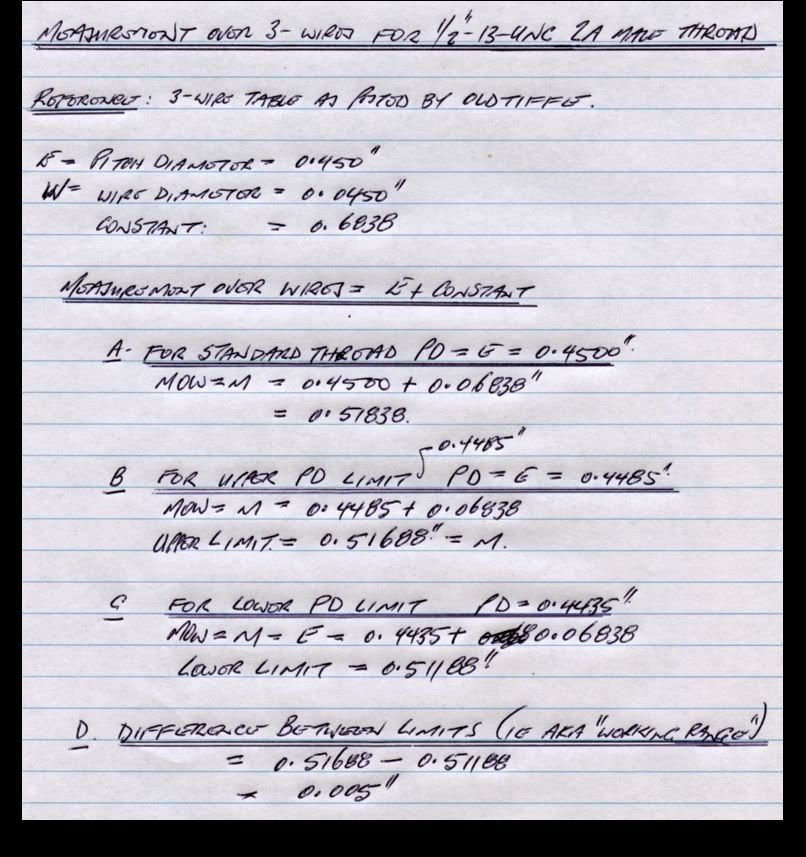 MEASUREMENT OVER 3-WIRES FOR 1/2"-13-UNC 2A MALE THREAD
REFERENCE: 3-WIRE TABLE AS POSTED BY OLDTIFFIE.
E = PITCH DIAMETER = 0.450"
W = WIRE DIAMETER = 0.0450"
CONSTANT: = 0.6838
MEASUREMENT OVER WIRES = E + CONSTANT
A- FOR STANDARD THREAD PD = E = 0.4500".
MOW = M = 0.4500 + 0.06838"
= 0.51838.
0.4485"
B FOR UPPER PD LIMIT PD = E = 0.4485".
MOW = M = 0.4485 + 0.06838
UPPER LIMIT = 0.51688" = M.
C FOR LOWER PD LIMIT PD = 0.4435"
MOW = M = E = 0.4435 + 0.06838
LOWER LIMIT = 0.51188"
D. DIFFERENCE BETWEEN LIMITS (IE AKA "WORKING RANGE")
= 0.51688 - 0.51188
= 0.005"